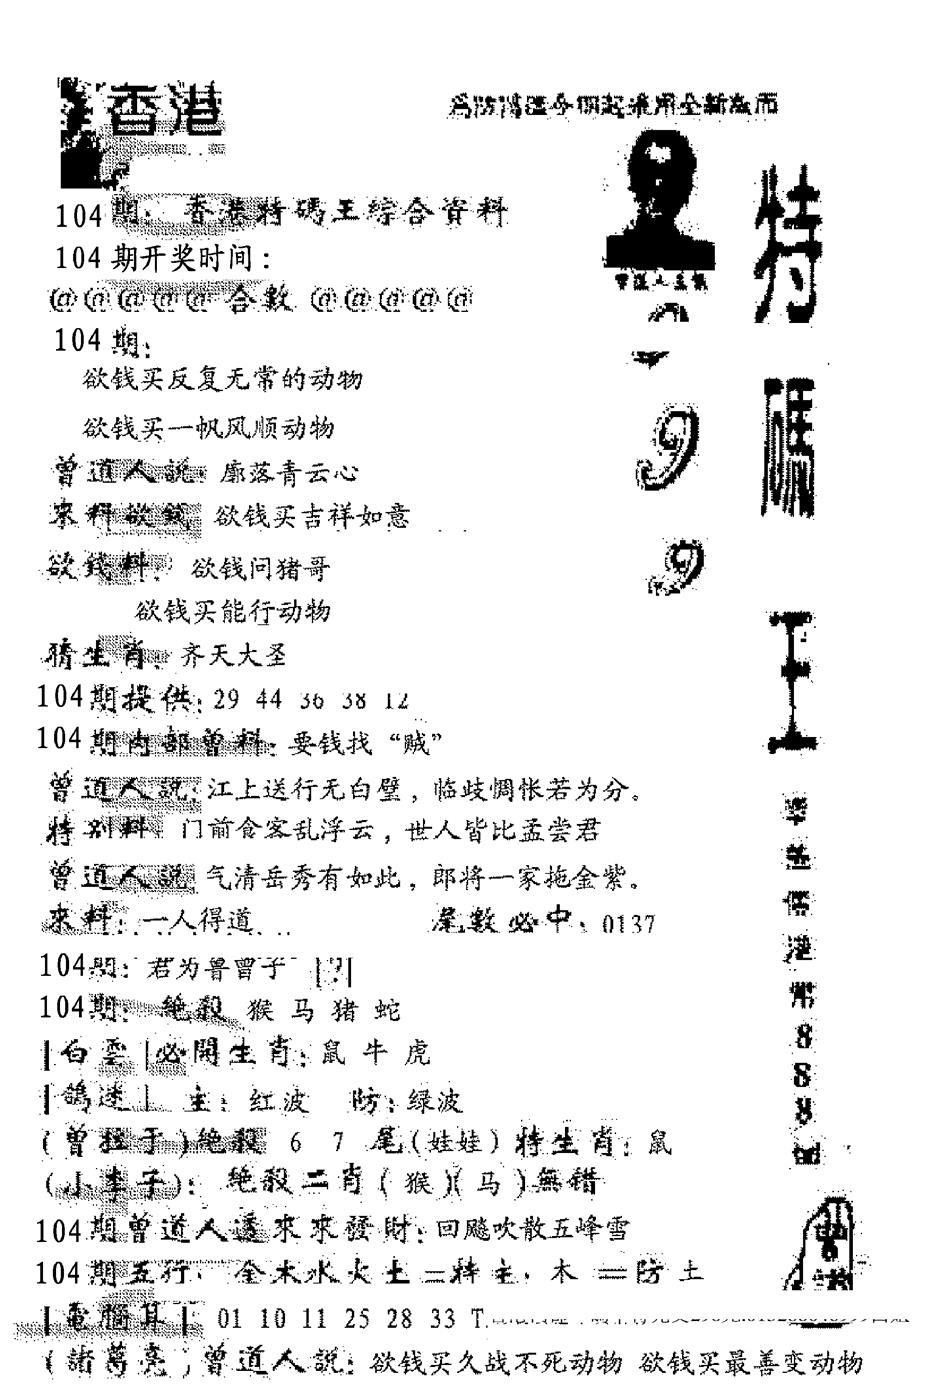 香港
為防偽證今期起采用全新版而
104期: 香港特碼王综合資料
104期开奖时间:
@@@@@合數@@@@@
104期:
欲钱买反复无常的动物
欲钱买一帆风顺动物
曾道人説:廓落青云心
來料欲錢 欲钱买吉祥如意
欲錢料: 欲钱问猪哥
欲钱买能行动物
猜生肖:齐天大圣
104期提供:29 44 36 38 12
104期内部曾料:要钱找“贼”
曾道人説:江上送行无白璧,临歧惆怅若为分。
特别料:门前食客乱浮云,世人皆比孟尝君
曾道人説 气清岳秀有如此,郎将一家拖金紫。
來料:一人得道 尾数必中:0137
104期:君为鲁曾子 [?]
104期:絶殺 猴 马 猪 蛇
|白雲|必開生肖:鼠 牛 虎
|鴿迷| 主:红波 防:绿波
(曾拉于)絶殺 6 7 尾(娃娃)特生肖:鼠
(小李子):絶殺二肖(猴)(马)無错
104期曾道人透來來發財:回飚吹散五峰雪
104期五行: 金木水火土=特主:木=防土
|電腦算| 01 10 11 25 28 33 T
(諸葛亮)曾道人説:欲钱买久战不死动物 欲钱买最善变动物
特
碼
王
9
9
港
幣
8
8
8